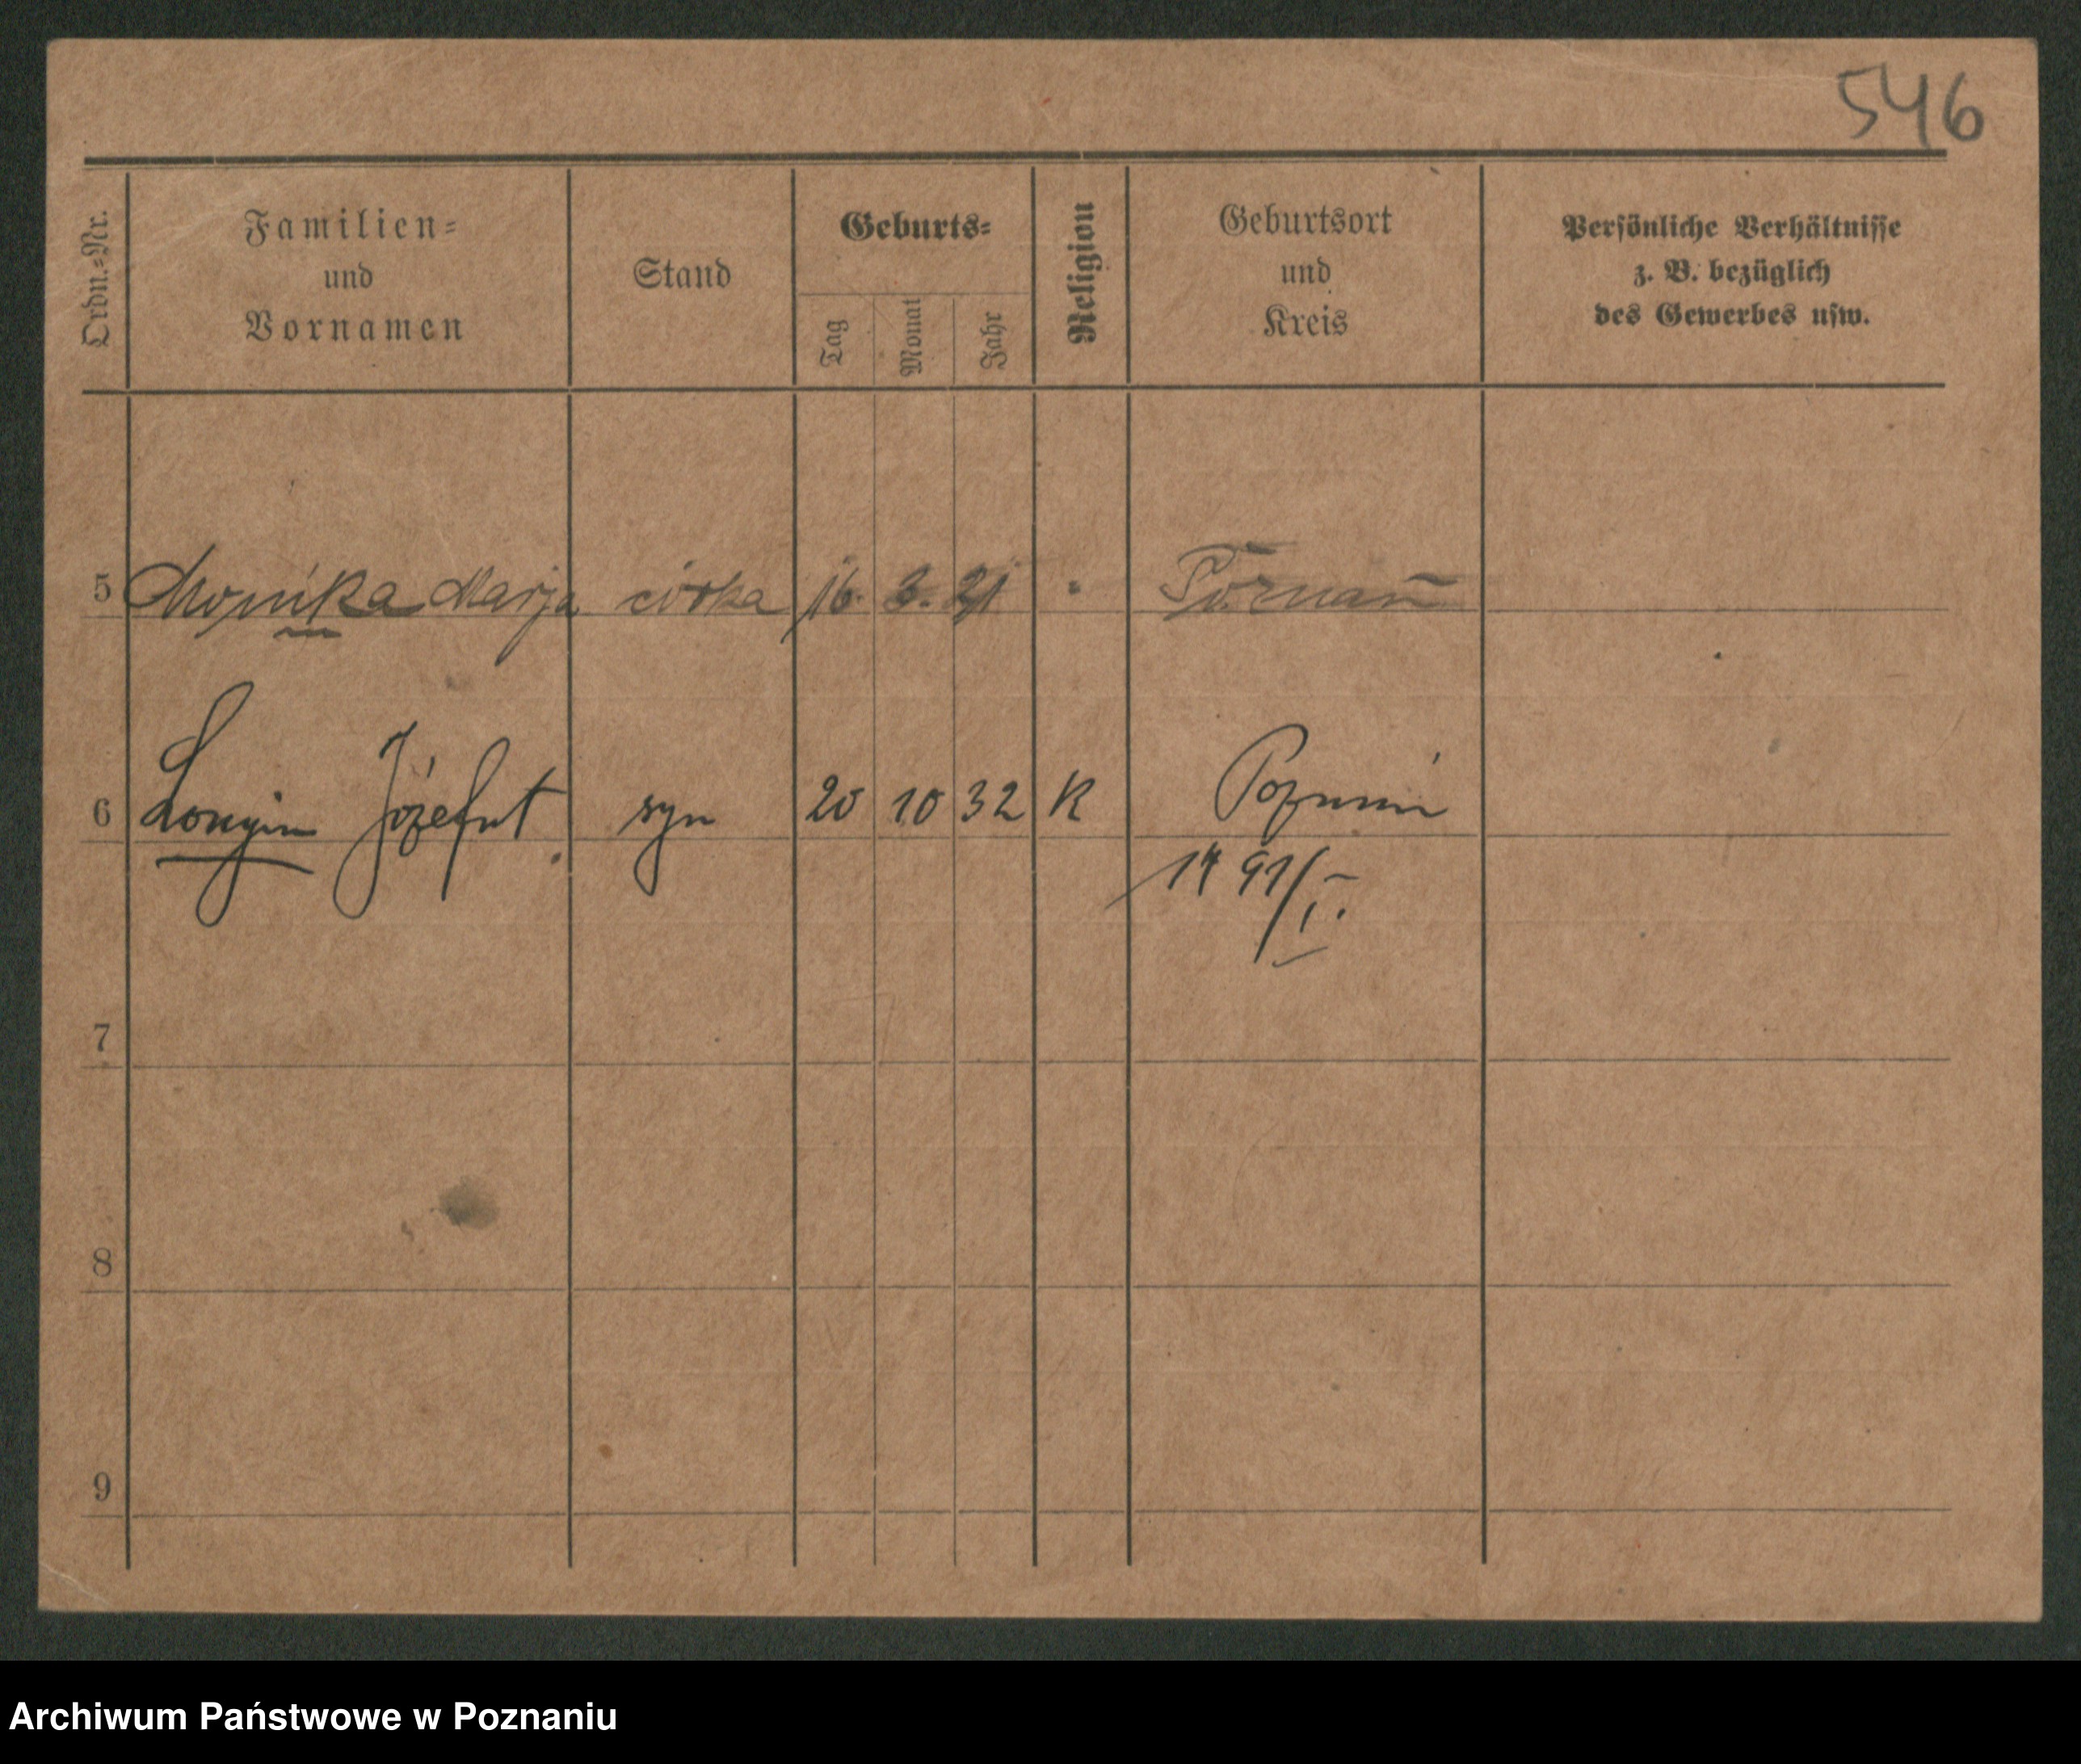 546
Ordn.=Nr.
Familien=
und
Vornamen
Stand
Geburts=
Tag
Monat
Jahr
Religion
Geburtsort
und
Kreis
Persönliche Verhältnisse
z. B. bezüglich
des Gewerbes usw.
5 Monika Marja córka 16. 3. 21 " Poznań
6 Longin Józefat syn 20 10 32 K Poznań
1491/I.
7
8
9
Archiwum Państwowe w Poznaniu